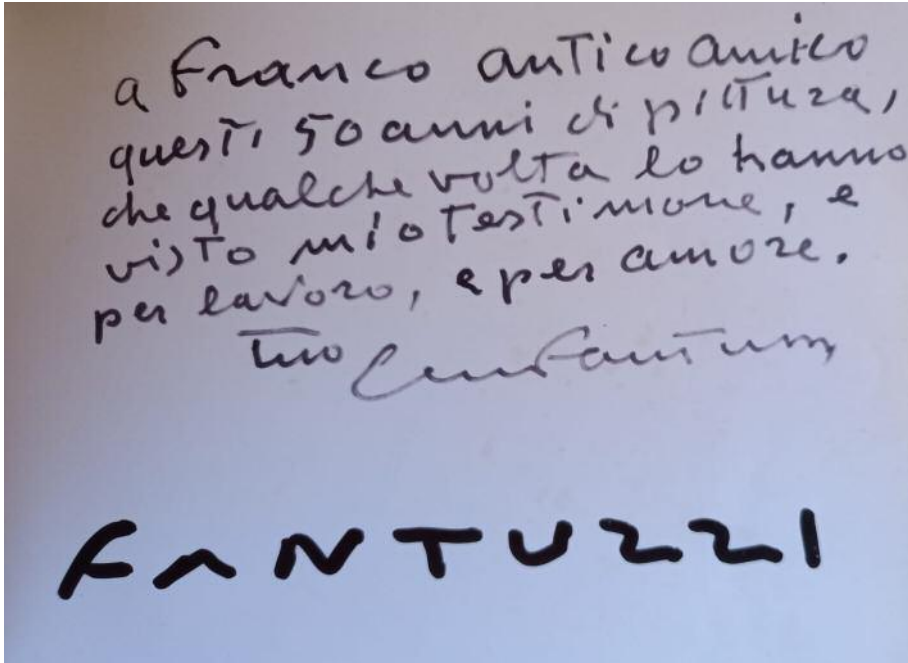 a Franco antico amico
questi 50 anni di pittura,
che qualche volta lo hanno
visto mio testimone, e
per lavoro, e per amore.
tuo Fantuzzi
FANTUZZI